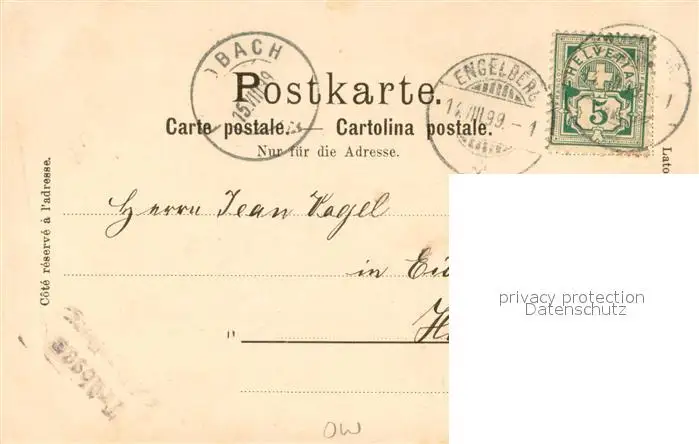 BACH
15.VIII.99
ENGELBERG
14.VIII.99.-1
HELVETIA
5
Postkarte.
Carte postale. — Cartolina postale.
Nur für die Adresse.
Côté réservé à l'adresse.
Lato
Herrn Jean Vogel
in Ei
"
H
privacy protection
Datenschutz
OW